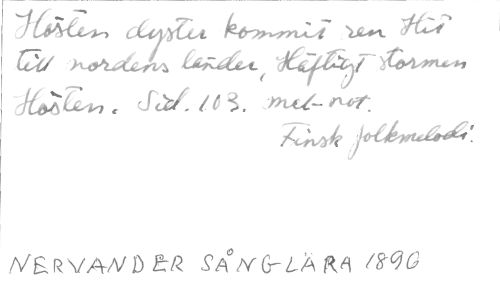 Hösten dyster kommit ren Hit
till nordens länder, Häftigt stormen
Hösten. Sid. 103. mel-not.
Finsk folkmelodi.
NERVANDER SÅNGLÄRA 1890